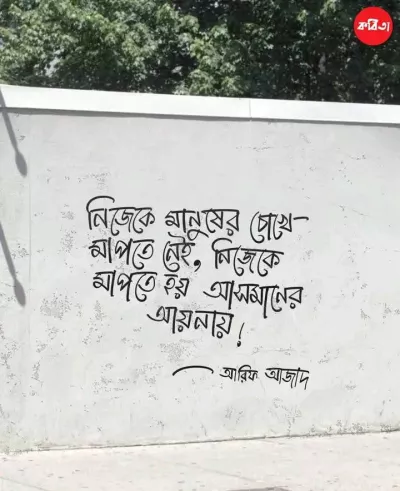 কবিতা
নিজেকে মানুষের চোখে-
মাপতে নেই, নিজেকে
মাপতে হয় আসমানের
আয়নায়!
— আরিফ আজাদ